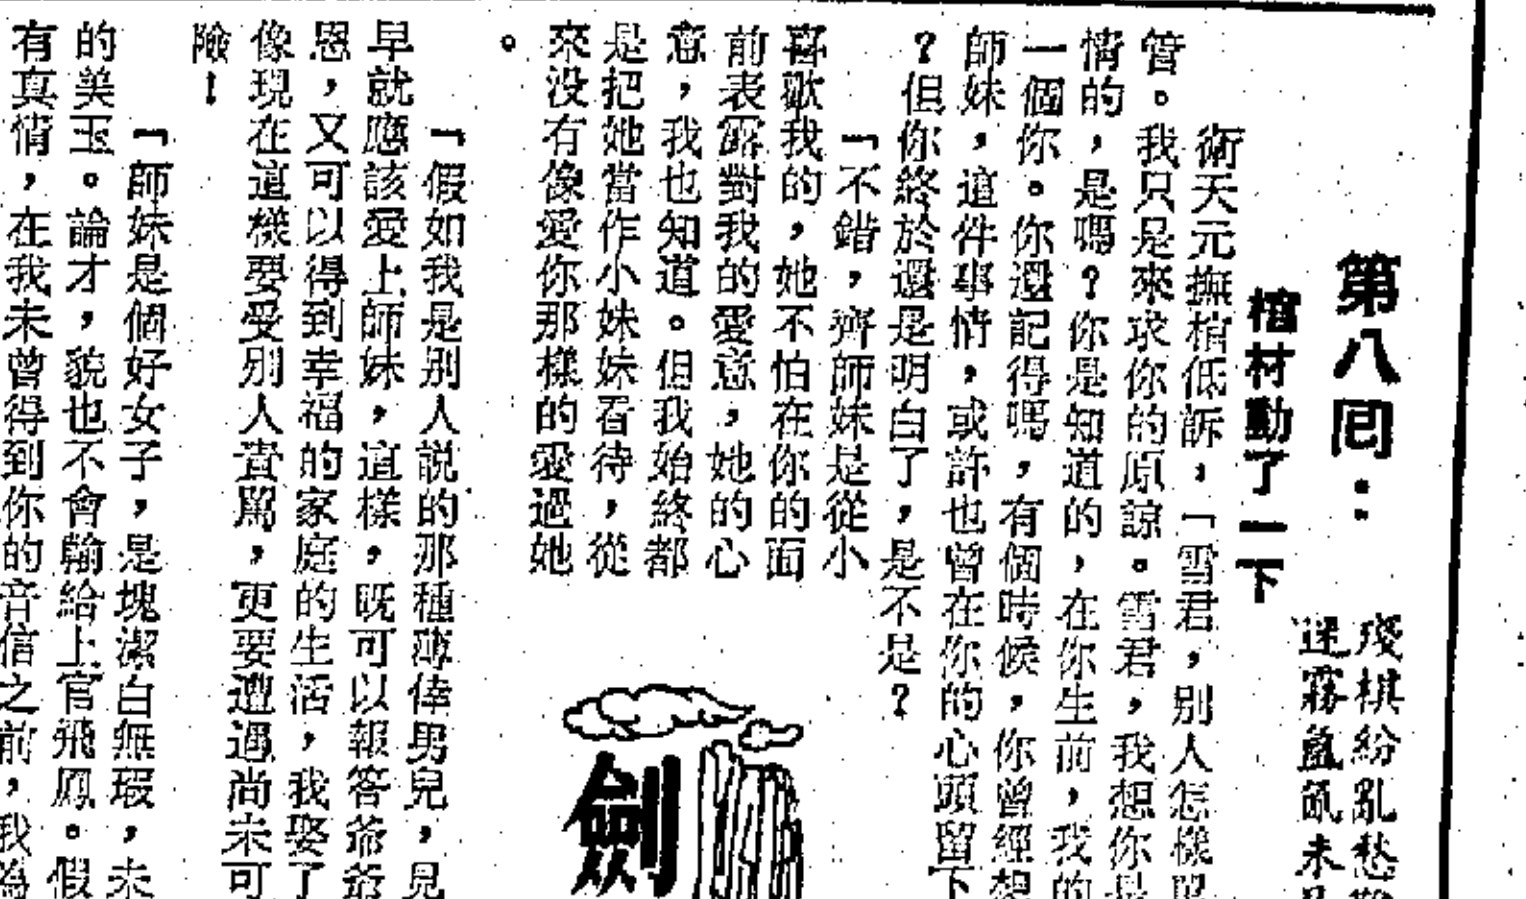 第八回：
殘棋紛亂愁
迷霧氤氳未
棺材動了一下
衛天元撫棺低訴，「雪君，别人怎樣
管。我只是來求你的原諒。雪君，我想你是
情的，是嗎？你是知道的，在你生前，我的
一個你。你還記得嗎，有個時候，你曾經想
師妹，這件事情，或許也曾在你的心頭留下
？但你終於還是明白了，是不是？
「不錯，齊師妹是從小
喜歡我的，她不怕在你的面
前表露對我的愛意，她的心
意，我也知道。但我始終都
是把她當作小妹妹看待，從
來没有像愛你那樣的愛過她
。
劍
「假如我是别人説的那種薄倖男兒，見
早就應該愛上師妹，這樣，既可以報答爺爺
恩，又可以得到幸福的家庭的生活，我娶了
像現在這樣要受别人責罵，更要遭遇尚未可
險！
「師妹是個好女子，是塊潔白無瑕，未
的美玉。論才，貌也不會輸給上官飛鳳。假
有真情，在我未曾得到你的音信之前，我為